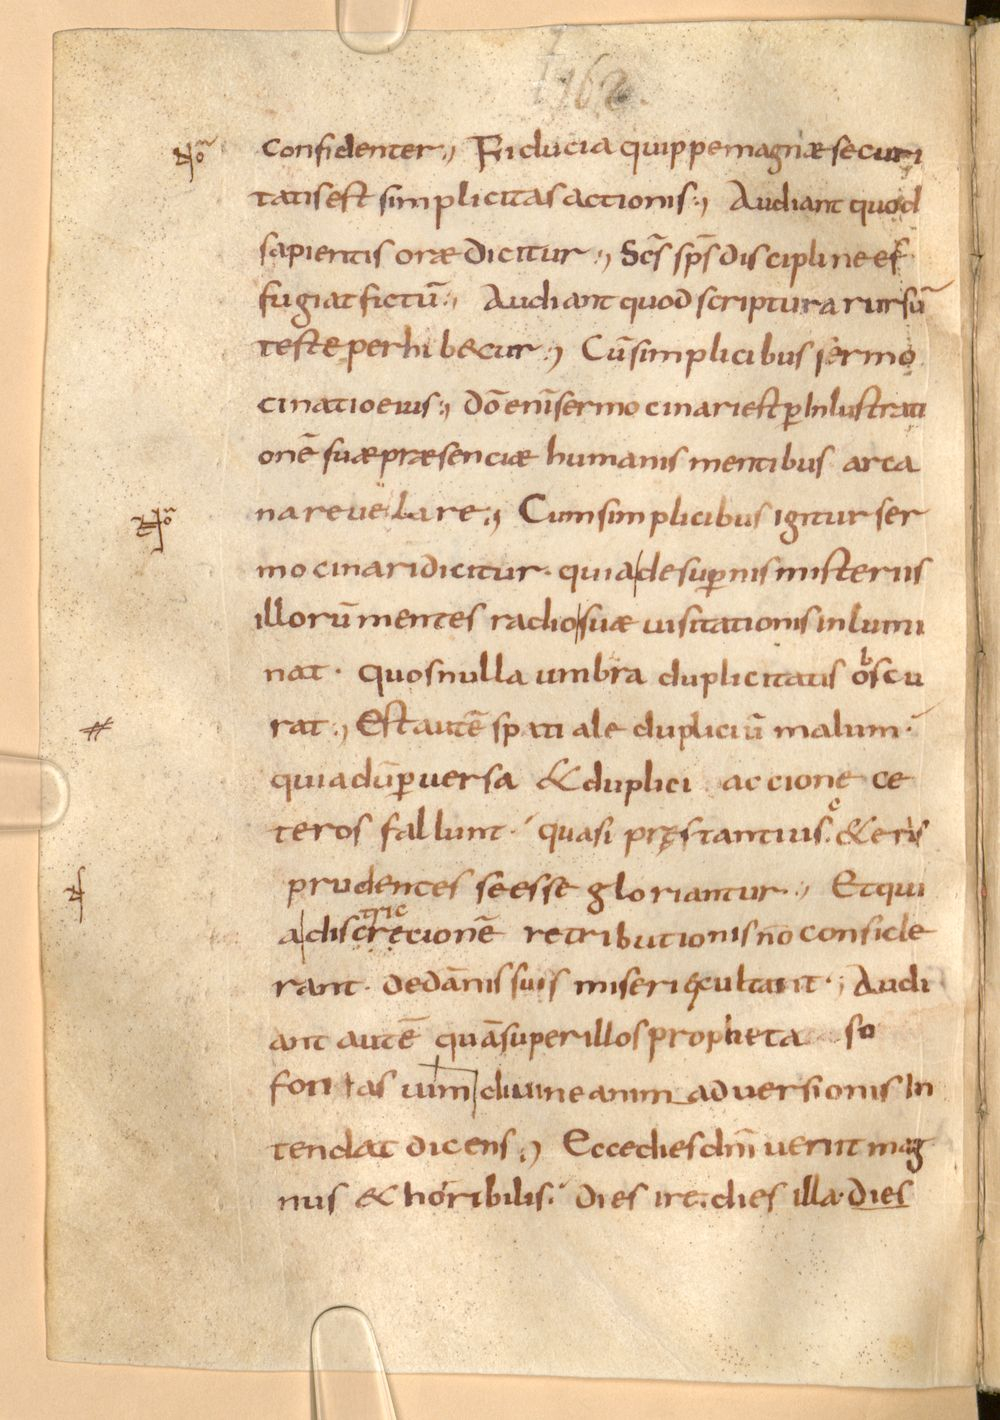 162.
confidenter., Fiducia quippe magnæ securi
tatis est simplicitas actionis:, Audiant quod
sapientis oræ dicitur:, Scs̄ sps̄ discipline ef
fugiat fictū:, Audiant quod scriptura rursū
teste perhibetur:, Cū simplicibus sermo
cinatio eius:, dō enī sermocinari est ꝑ inlustrati
onē suæ præsenciæ humanis mentibus arca
na reuelare:, Cum simplicibus igitur ser
mocinari dicitur. quia de suꝑnis misteriis
illorū mentes radio suæ uisitationis inlumi
nat. quos nulla umbra duplicitatis obscu
rat., Est autē spatiale dupliciū malum.
quia dū ꝑuersa & duplici accione ce
teros fallunt. quasi pręstantius & eris
prudentes se esse gloriantur., Et qui
a discrecionē retributionis nō conside
rant. de dānis suis miseri exultant., Audi
ant autē quā super illos propheta so
fonias uim diuine animaduersionis in
tendat dicens:, Ecce dies dnī uenit mag
nus & horribilis. dies ire. dies illa. dies